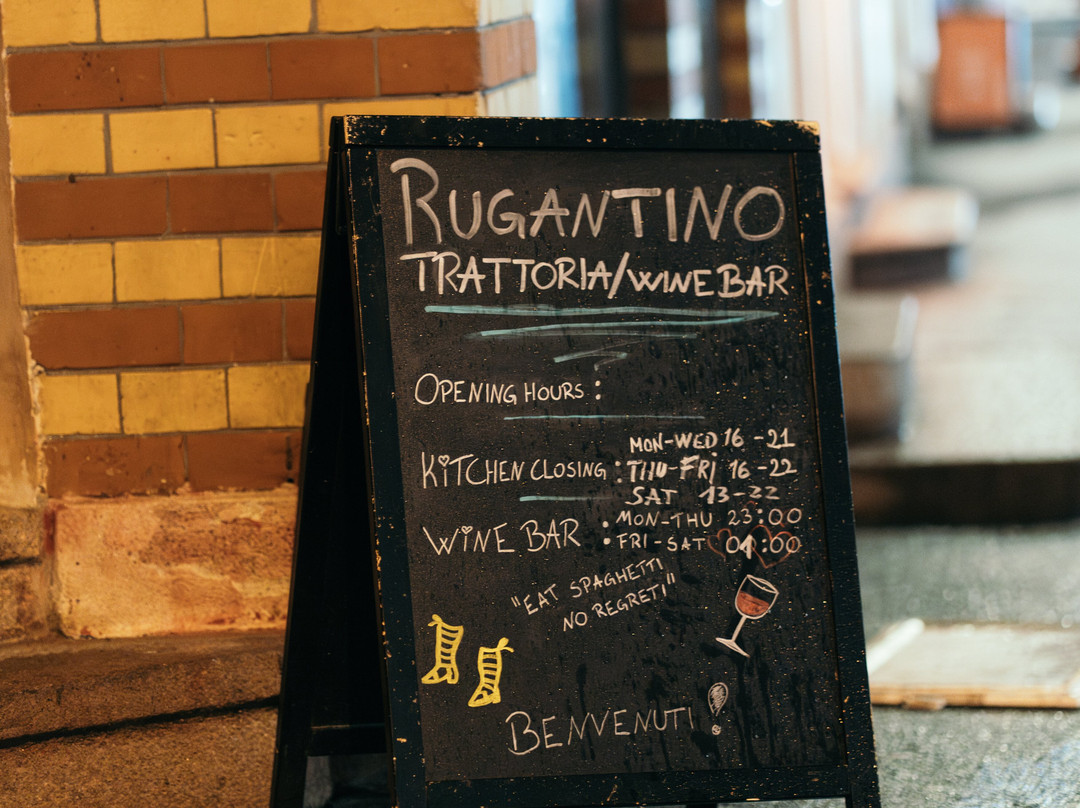 RUGANTINO
TRATTORIA/WINEBAR
OPENING HOURS :
MON-WED 16 -21
KITCHEN CLOSING : THU-FRI 16 -22
SAT 13-22
WINE BAR : MON-THU 23:00
FRI-SAT 01:00
"EAT SPAGHETTI
NO REGRETI"
BENVENUTI !